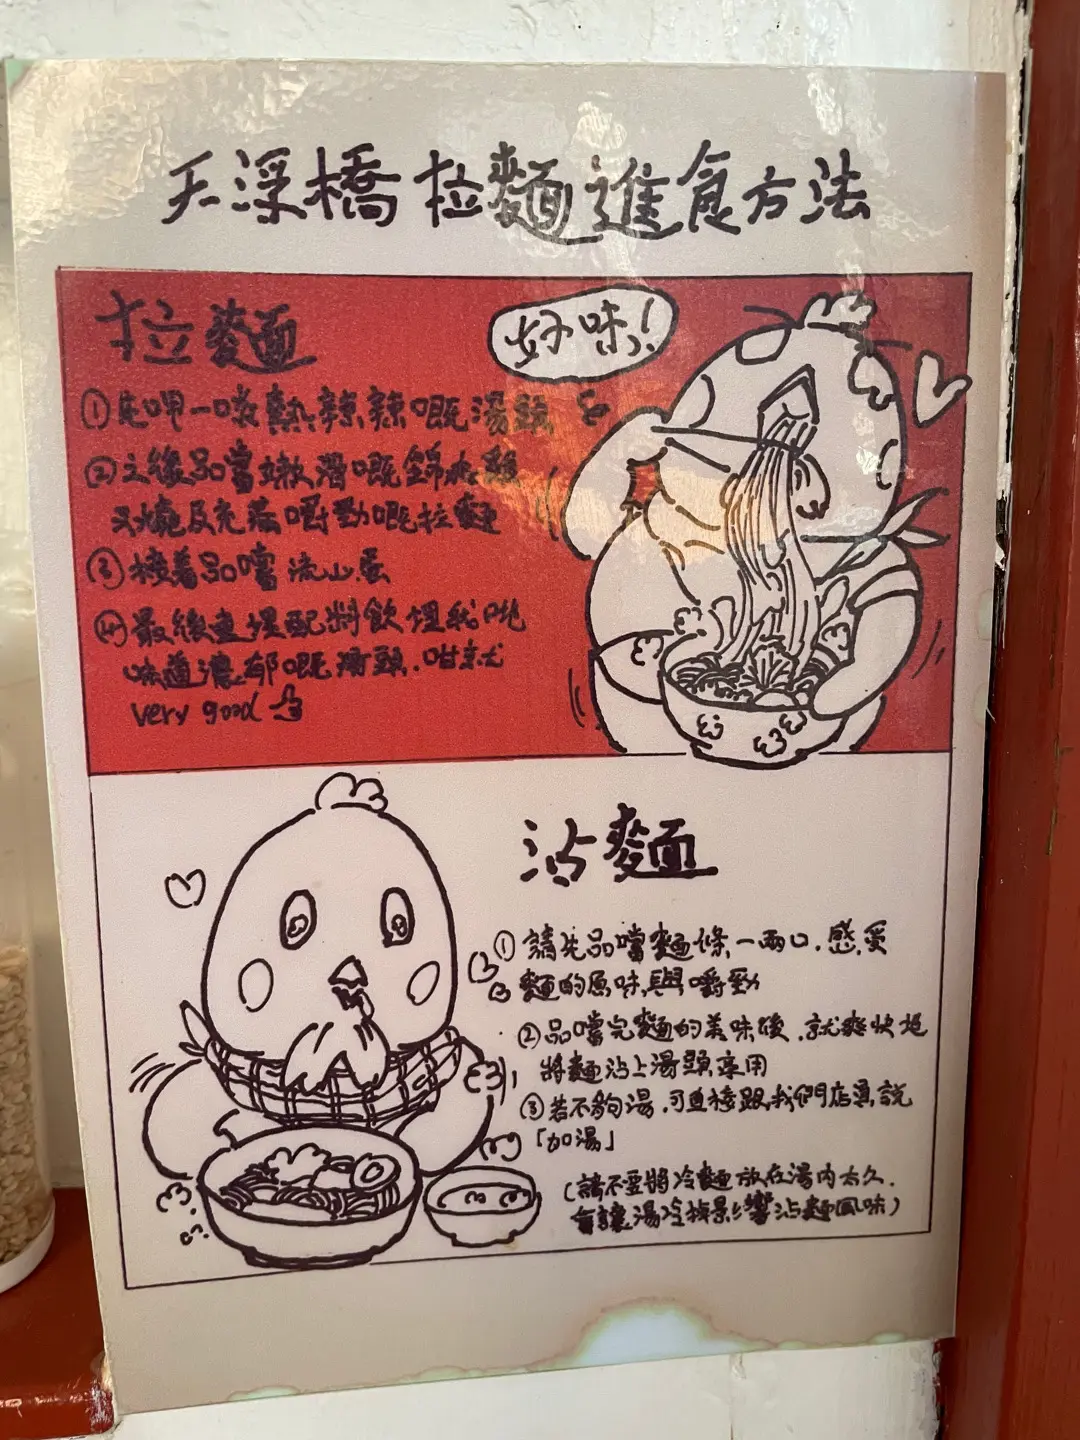 天滘橋拉麵進食方法
拉麵
好味!
①先呷一啖熱辣辣嘅湯頭
②之後品嘗嫩滑嘅錦爽雞
叉燒及充滿嚼勁嘅拉麵
③接着品嚐流心蛋
④最後連埋配料飲埋
味道濃郁嘅湯頭.咁就
very good
沾麵
①請先品嚐麵條一兩口.感受
麵的原味與嚼勁
②品嚐完麵的美味後.就爽快地
將麵沾上湯頭享用
③若不夠湯.可直接跟我們店員說
「加湯」
(請不要將冷麵放在湯內太久.
會讓湯冷掉影響沾麵風味)